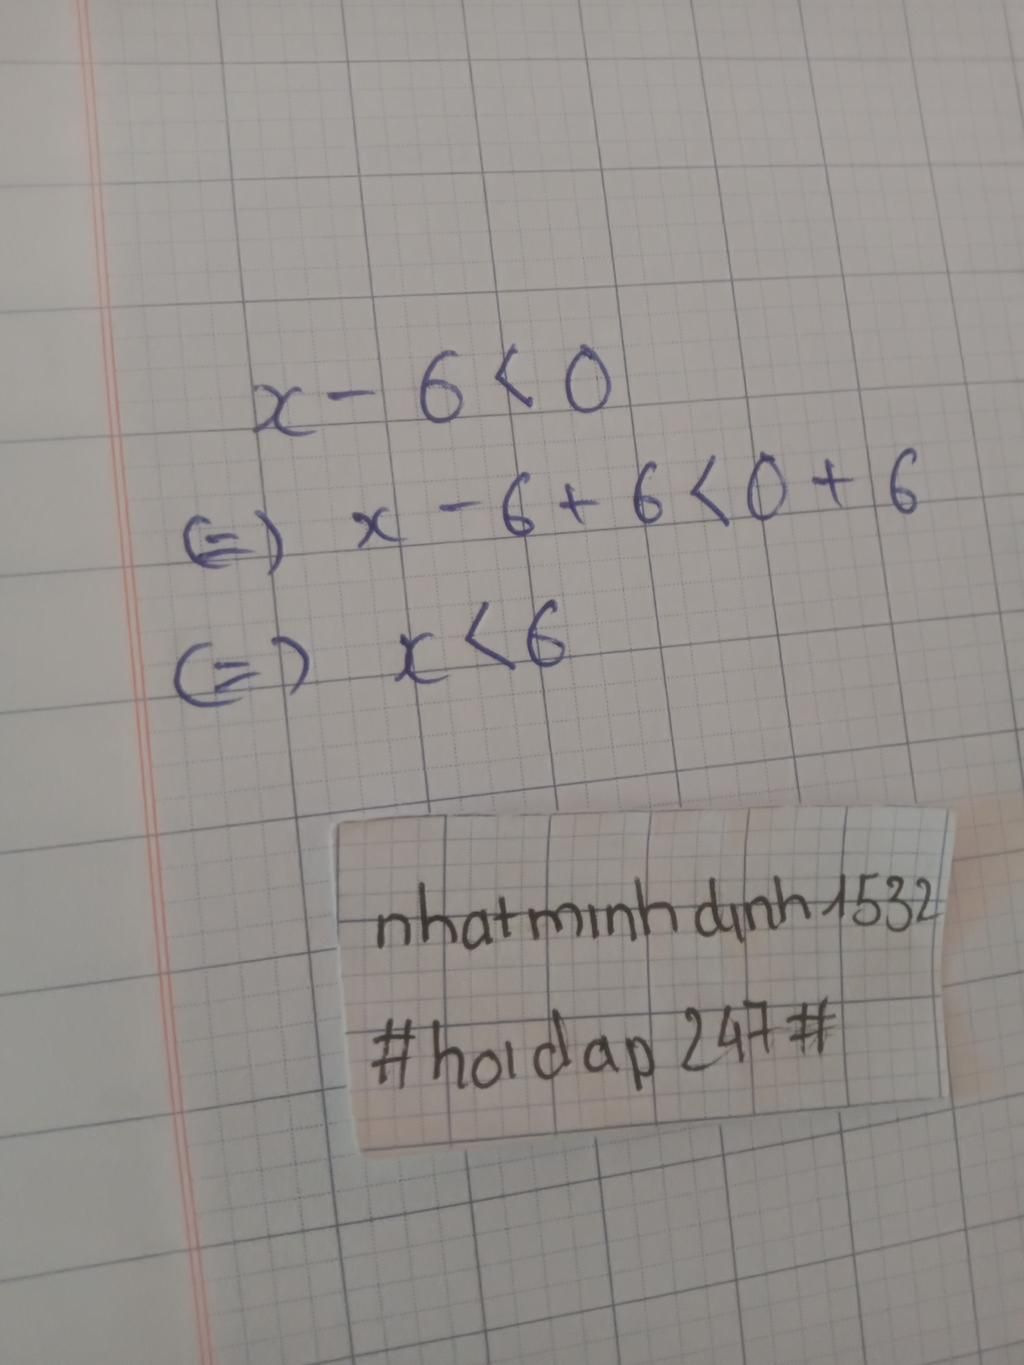 x - 6 < 0
(=) x - 6 + 6 < 0 + 6
(=) x < 6
nhatminhdinh1532
#hoidap247#